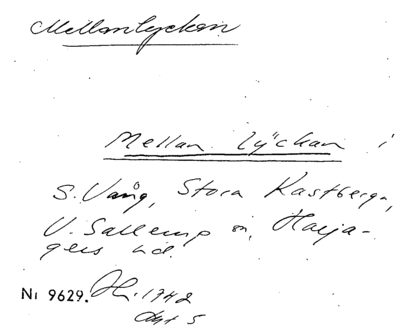 Mellanlyckan
Mellan lyckan i
S. Vång, Stora Kastberga,
V. Sallerup sn, Harja-
gers hd.
Nr 9629. 1742
akt 5